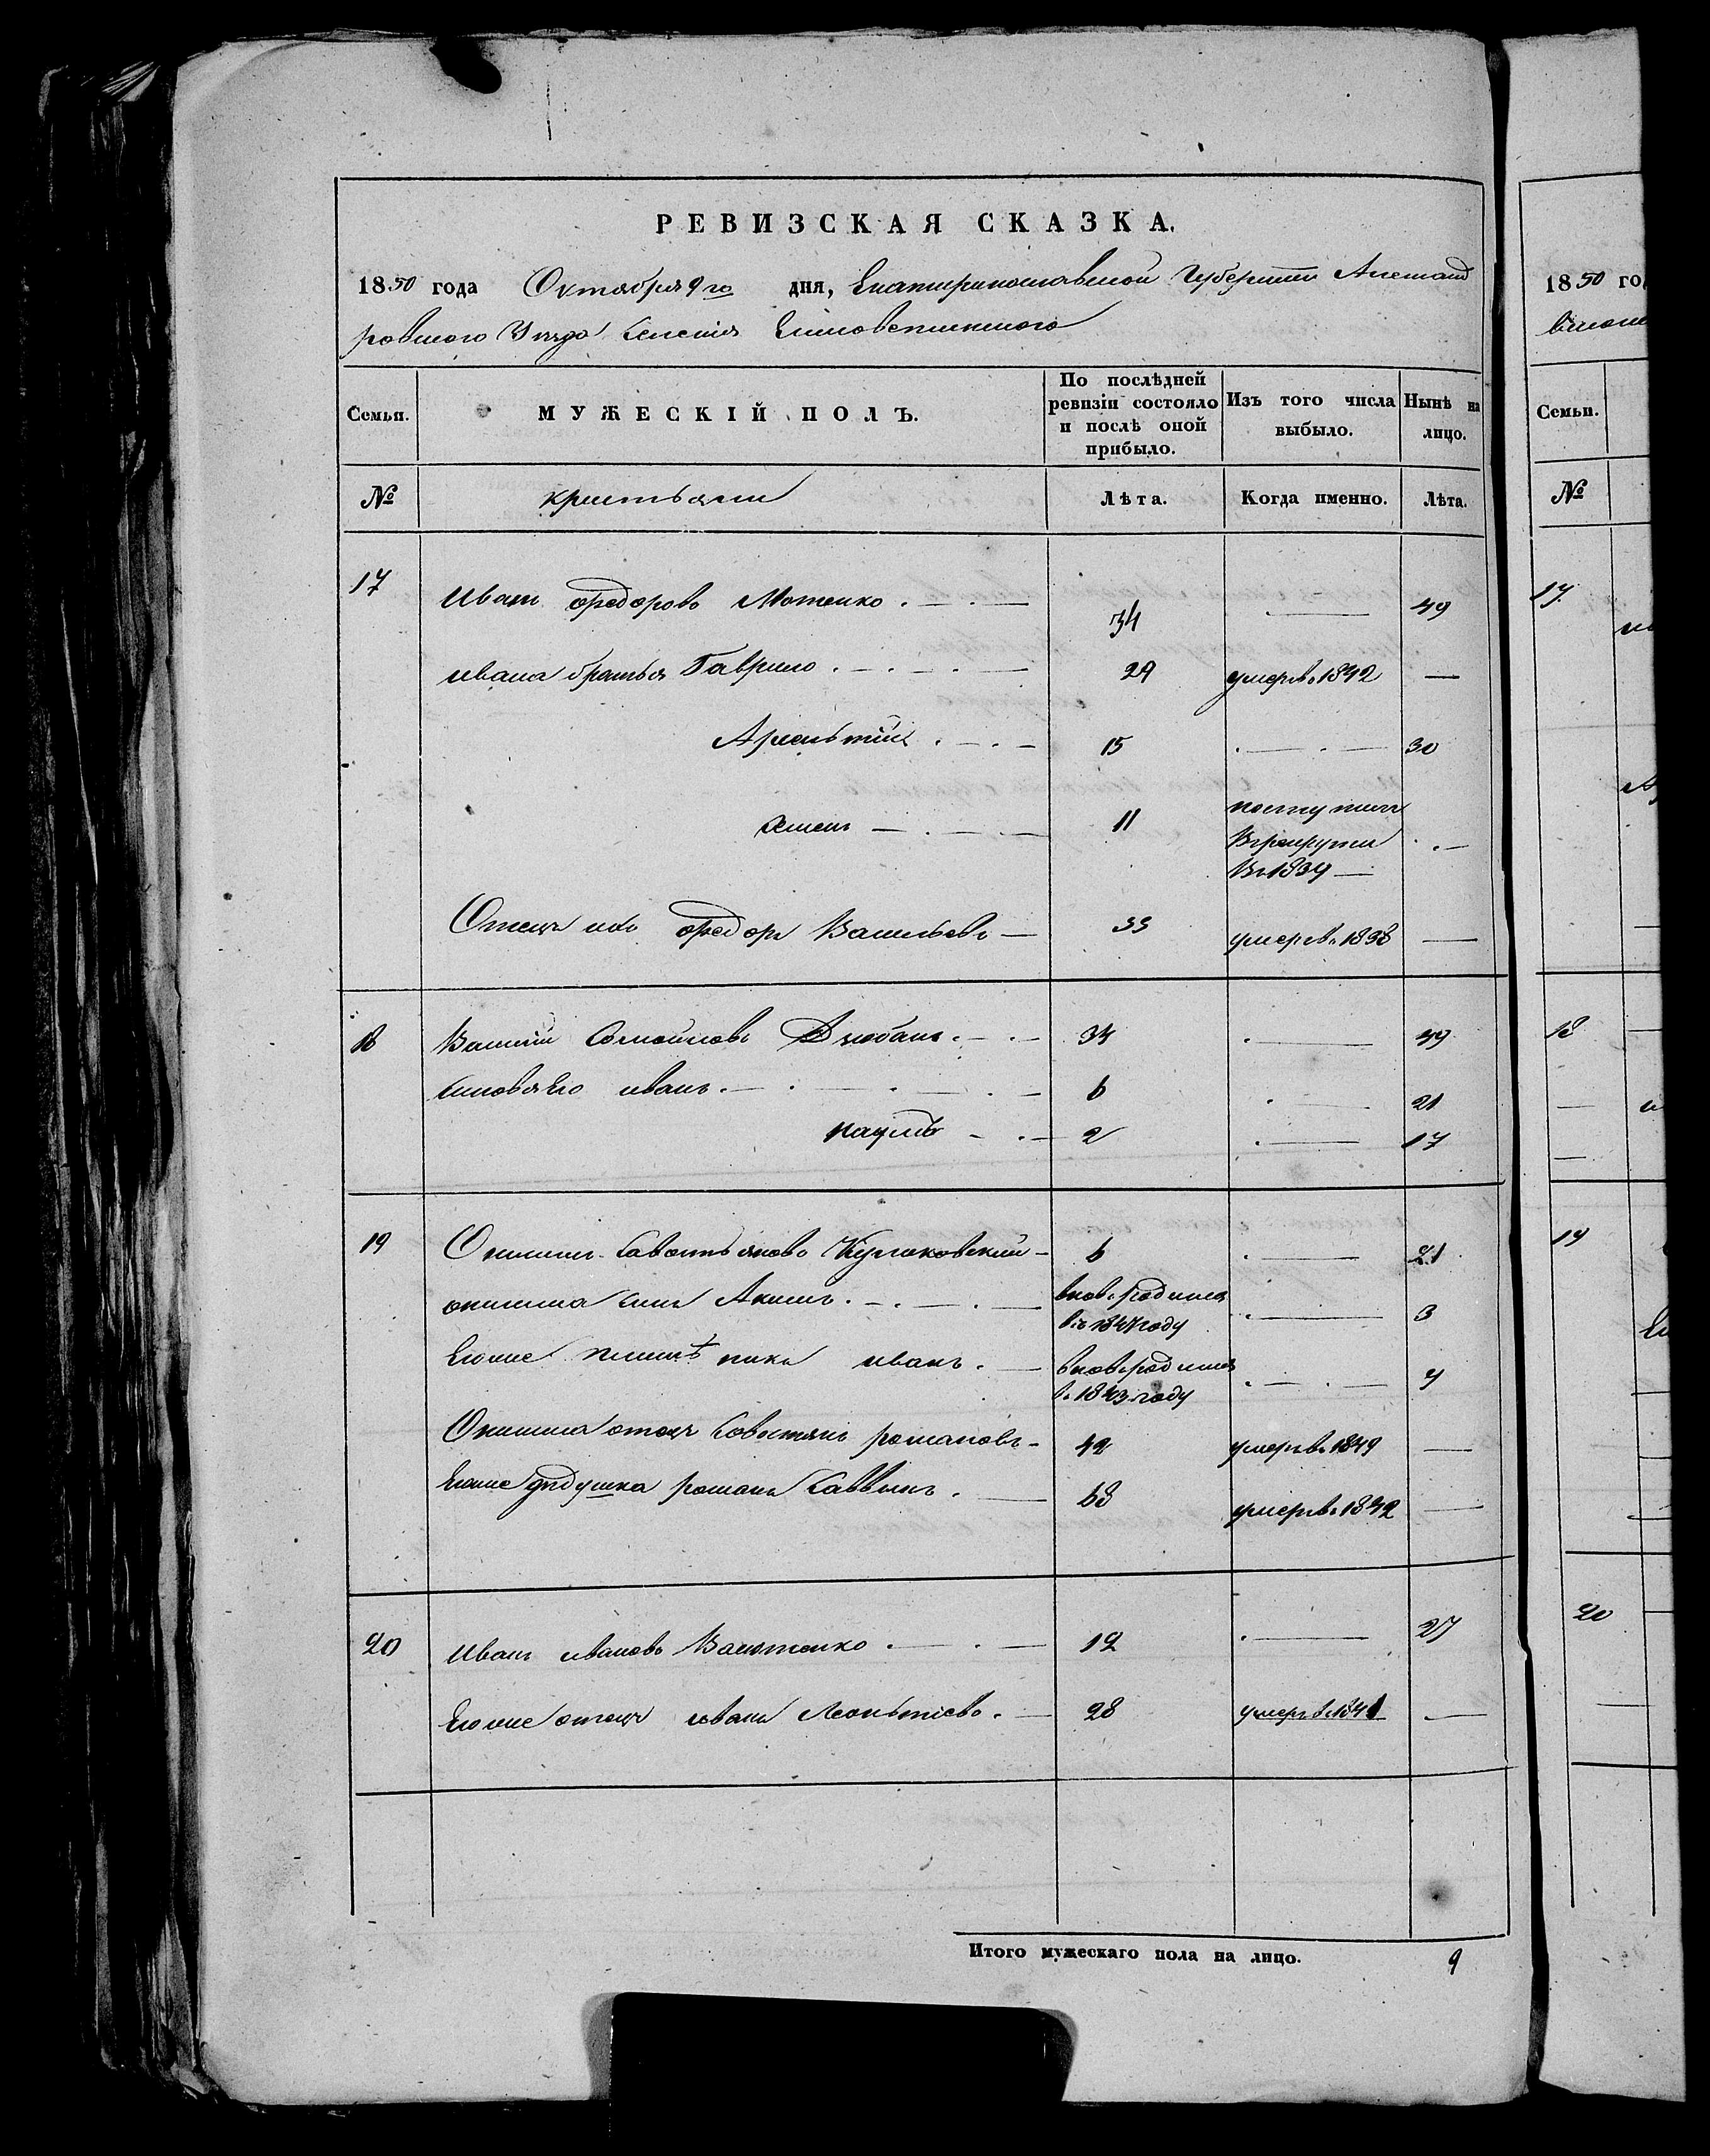 РЕВИЗСКАЯ СКАЗКА.
1850 года Октября 9го дня, Екатеринославской Губернии Александ
ровского Уезда Селения
Семьи. МУЖЕСКІЙ ПОЛЪ. По послѣдней ревизіи состояло и послѣ оной прибыло. Изъ того числа выбыло. Нынѣ на лицо.
№ крестьяни Лѣта. Когда именно. Лѣта.
17 Иванъ Федоровъ Мотенко 34 49
Ивана братья Гаврило 29 умеръ в. 1842
15 30
11 поступилъ
В рекруты
Въ 1834
Отецъ ихъ Федоръ Васильевъ умеръ в. 1838
18 Василій Самойловъ Дзюбанъ 34 49
Сыновья Его иванъ 6 21
наумъ 2 17
19 Онисимъ Савостьяновъ 6 21
онисима сынъ Акимъ вновь родился 3
въ 1847 году
Его же племѣникъ иванъ вновь родился 7
в. 1843 году
Онисима отецъ Савостянъ романовъ 42 умеръ в. 1849
Его же дѣдушка романъ Саввинъ 68 умеръ в. 1842
20 Иванъ ивановъ Васютенко 12 27
Его же отецъ иванъ Леонтіевъ 28 умеръ в. 1841
Итого мужескаго пола на лицо. 9
1850 го
Семьи.
№
17
18
19
20